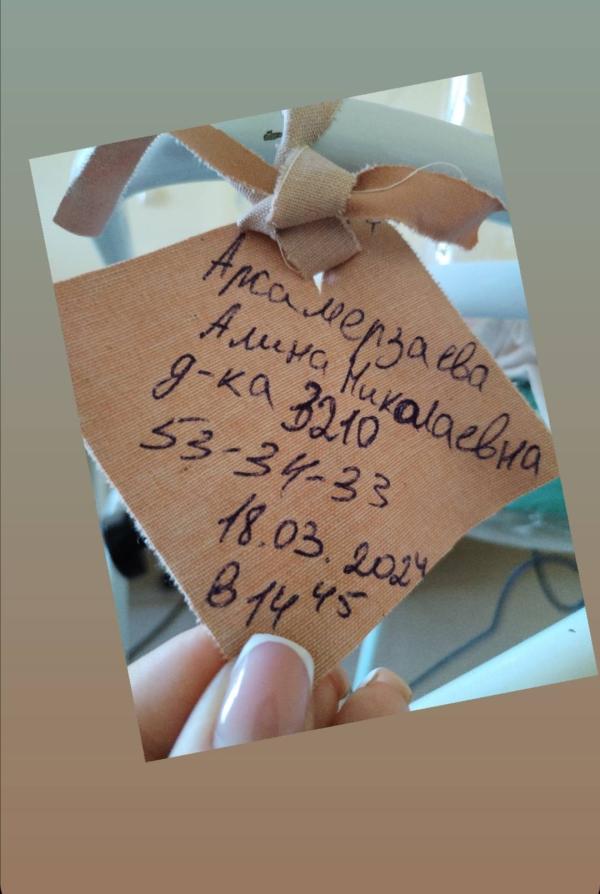 Арсамерзаева
Алина Николаевна
д-ка 3210
53-34-33
18.03.2024
В 14 45